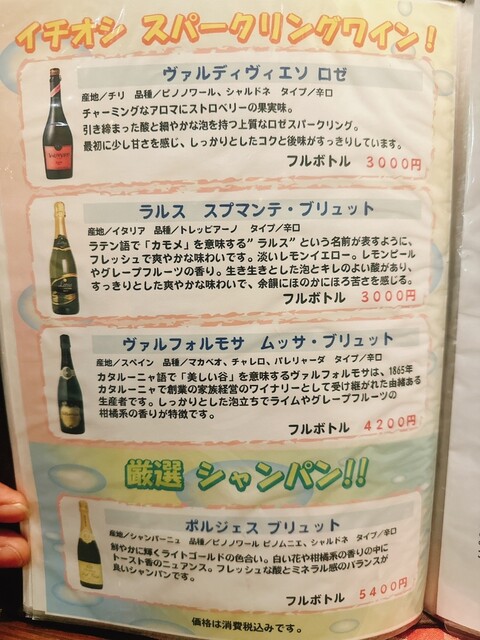 イチオシ スパークリングワイン！
ヴァルディヴィエソ ロゼ
産地／チリ　品種／ピノノワール、シャルドネ　タイプ／辛口
チャーミングなアロマにストロベリーの果実味。
引き締まった酸と細やかな泡を持つ上質なロゼスパークリング。
最初に少し甘さを感じ、しっかりとしたコクと後味がすっきりしています。
フルボトル　3000円
ラルス　スプマンテ・ブリュット
産地／イタリア　品種／トレッビアーノ　タイプ／辛口
ラテン語で「カモメ」を意味する”ラルス”という名前が表すように、
フレッシュで爽やかな味わいです。淡いレモンイエロー。レモンピール
やグレープフルーツの香り。生き生きとした泡とキレのよい酸があり、
すっきりとした爽やかな味わいで、余韻にほのかにほろ苦さを感じる。
フルボトル　3000円
ヴァルフォルモサ　ムッサ・ブリュット
産地／スペイン　品種／マカベオ、チャレロ、パレリャーダ　タイプ／辛口
カタルーニャ語で「美しい谷」を意味するヴァルフォルモサは、1865年
カタルーニャで創業の家族経営のワイナリーとして受け継がれた由緒ある
生産者です。しっかりとした泡立ちでライムやグレープフルーツの
柑橘系の香りが特徴です。
フルボトル　4200円
厳選 シャンパン!!
ポルジェス ブリュット
産地／シャンパーニュ　品種／ピノノワール ピノムニエ、シャルドネ　タイプ／辛口
鮮やかに輝くライトゴールドの色合い。白い花や柑橘系の香りの中に
トースト香のニュアンス。フレッシュな酸とミネラル感のバランスが
良いシャンパンです。
フルボトル　5400円
価格は消費税込みです。